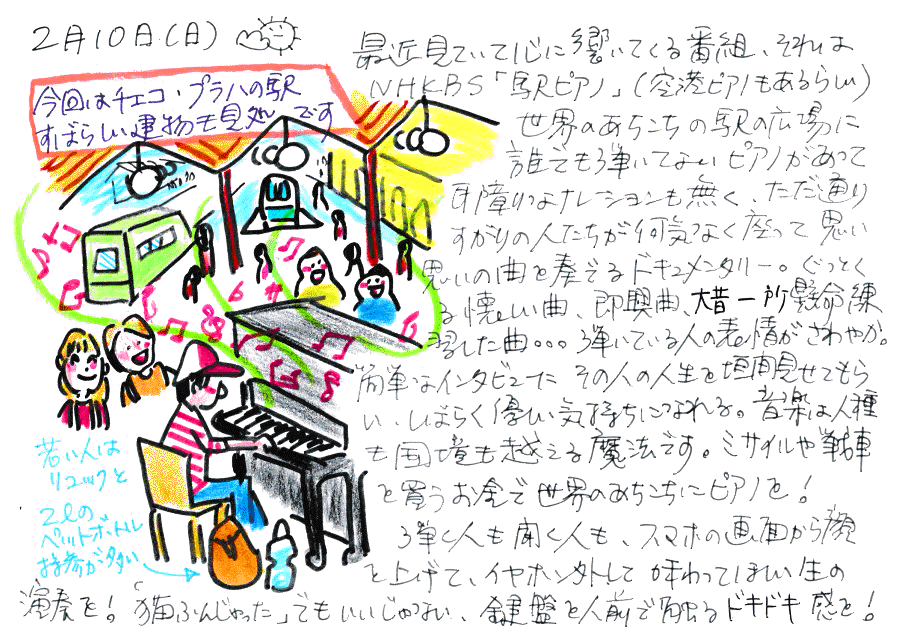 2月10日(日)
今回はチェコ・プラハの駅
すばらしい建物も見処です
最近見ていて心に響いてくる番組、それは
NHKBS「駅ピアノ」(空港ピアノもあるらしい)
世界のあちこちの駅の広場に
誰でも弾いてよいピアノがあって
耳障りなナレーションも無く、ただ通り
すがりの人たちが何気なく座って思い
思いの曲を奏でるドキュメンタリー。ぐっとく
る懐しい曲、即興曲、大昔一所懸命練
習した曲・・・弾いている人の表情がさわやか。
簡単なインタビューに その人の人生を垣間見せてもら
い、しばらく優しい気持ちになれる。音楽は人種
も国境も越える魔法です。ミサイルや戦車
を買うお金で世界のあちこちにピアノを!
弾く人も聞く人も、スマホの画面から顔
を上げて、イヤホン外して 味わってほしい生の
演奏を!「猫ふんじゃった」でもいいじゃない、鍵盤を人前で触るドキドキ感を!
若い人は
リュックと
2ℓの
ペットボトル
持参が多い